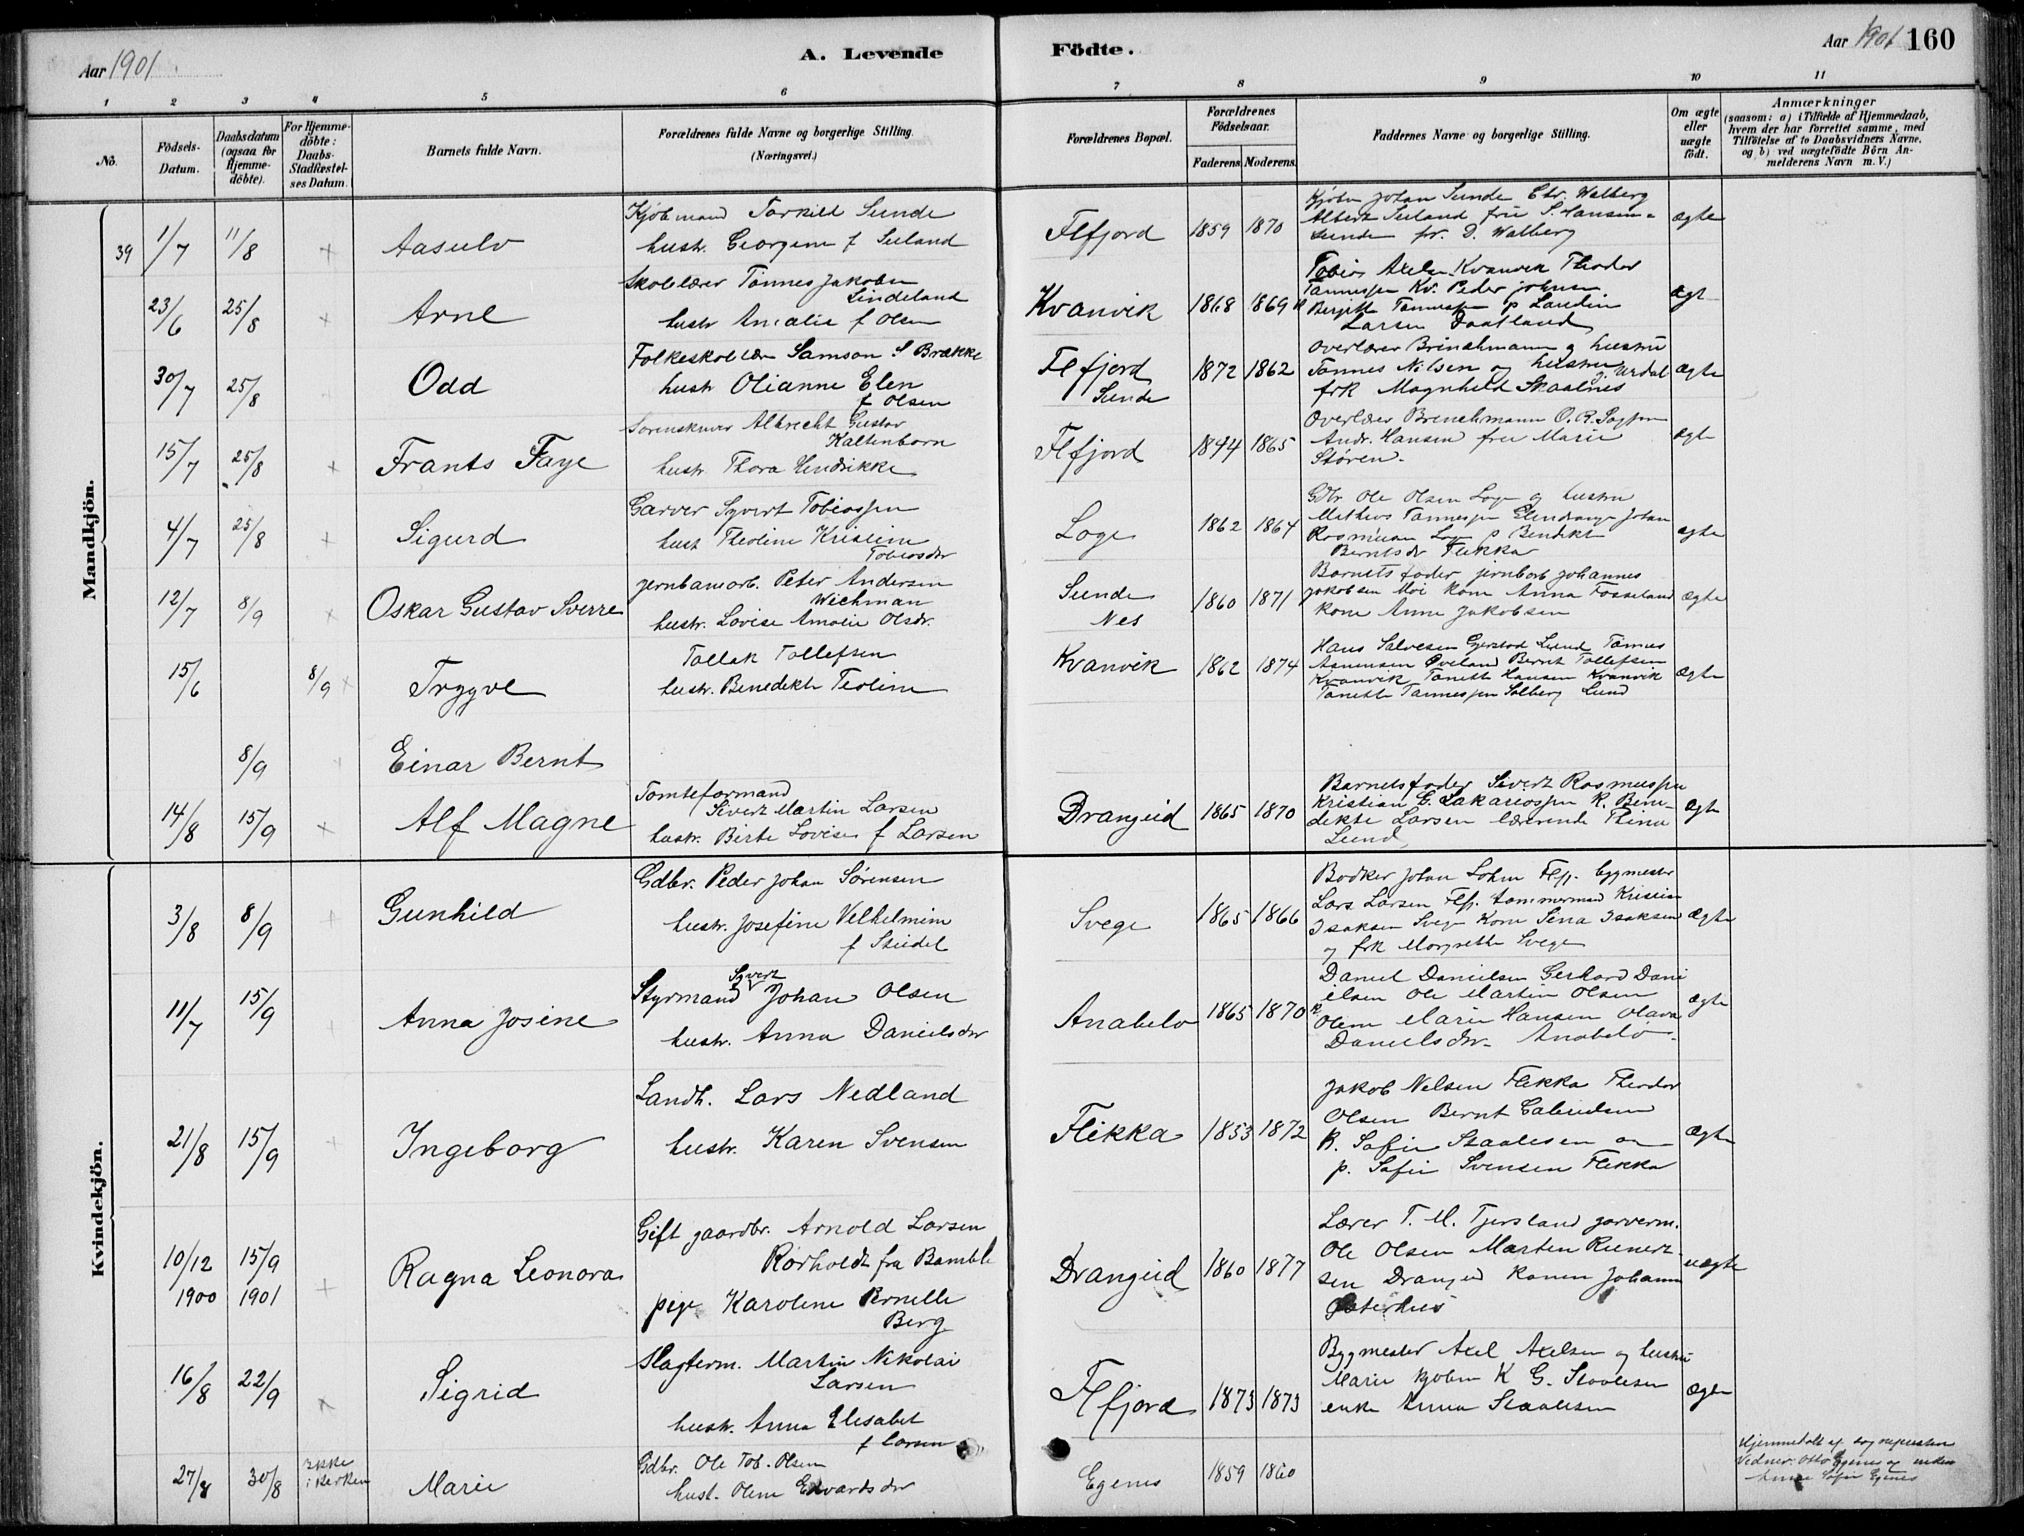 Aar 1901
A. Levende
Födte.
Aar 1901
160
1 2 3 4 5 6 7 8 9 10 11
No.
Födsels-Datum.
Daabsdatum (ogsaa for Hjemme-döbte).
For Hjemme-döbte: Daabs-Stadfæstel-ses Datum.
Barnets fulde Navn.
Forældrenes fulde Navne og borgerlige Stilling.
(Næringsvei.)
Forældrenes Bopæl.
Forældrenes Födselsaar.
Faderens. Moderens.
Faddernes Navne og borgerlige Stilling.
Om ægte eller uægte födt.
Anmærkninger
(saasom: a) i Tilfælde af Hjemmedaab, hvem der har forrettet samme, med Tilföielse af to Daabsvidners Navne, og b) ved uægtefödte Börn An-melderens Navn m. V.)
Mandkjön.
39 1/7 11/8 Aasulv
Kjöbmand Torkild Sunde
hustr. Georgine f Seland
Flfjord 1859 1870
Kjøbm Johan Sunde Chr. Walberg
Albert Seland frue S. Hansen
Sunde fr. D. Walberg
ægte
23/6 25/8 Arne
Skolelærer Tønnes Jakobsen
Lindeland
hustr Amalie f Olsen
Kvanvik 1868 1869
Tobias Axelsen Kvanvik Theodor
Tønnessen Kv. Peder Johnsen
Birgitte Tønnessen p Laudin
Larsen Daatland
ægt
30/7 25/8 Odd
Folkeskolelær Samson S Brække
hustr Olianne Elen
f Olsen
Flfjord
Sunde
1872 1862
Overlærer Brinchmann og hustru
Tønnes Nilsen og hustru Urdal
frk Magnhild Skaalnes
ægte
15/7 25/8 Frants Faye
Sorenskriver Albrecht Gustav
Kaltenborn
hustr. Thora Hendrikke
Flfjord 1844 1865
Overlærer Brinchmann O. R.
Andr. Hansen frue Marie
Støren.
ægte
4/7 25/8 Sigurd
Garver Syvert Tobiassen
hust Theoline Kristine
Tobiasdr
Loge 1862 1864
Gdbr Ole Olsen Loge og hustru
Mathias Tønnessen Johan
Rasmusen Loge p Bendikte
Berntsdr Flikka
ægte
12/7 8/9 Oskar Gustav Sverre
jernbanearb. Peter Andersen
Wichman
hustr. Lovise Amalie Olsdr.
Sunde
Nes
1860 1871
Barnets fader jernbarb Johannes
Jakobsen Moi kone Anna Fosseland
kone Anne Jakobsen
ægte
15/6 8/9 Trygve
Tollak Tollefsen
hustr. Benedikte Teoline
Kvanvik 1862 1874
Hans Salvesen Gjerstad Lund Tønnes
Asmunsen Øveland Bernt Tollefsen
Kvanvik Tonette Hansen Kvanvik
Tonette Tønnessen Solberg Lund
ægte
8/9 Einar Bernt
14/8 15/9 Alf Magne
Tomteformand
Sivert Martin Larsen
hustr. Birte Lovise f Larsen
Drangeid 1865 1870
Barnetsfader Sivert Rasmussen
Kristian G. Sakariassen K. Bene-
dikte Larsen lærerinde Thina
Lund
ægte
Kvindekjön.
3/8 8/9 Gunhild
Gdbr. Peder Johan Sørensen
hustr. Josefine Vilhelmine
f Stridel
Svege 1865 1866
Bødker Johan Lohne Flfj. bygmester
Lars Larsen Flfj. tømmermand Kristian
Isaksen Svege Kone Sina Isaksen
og frk Margrethe Svege
ægte
11/7 15/9 Anna Josine
Syvert
Styrmand Johan Olsen
hustr. Anna Danielsdr
Anabelø 1865 1870
Daniel Danielsen Gerhard Dani
elsen Ole Martin Olsen
Oline Marie Hansen Olava
Danielsdr. Anabelø
ægte
21/8 15/9 Ingeborg
Landh. Lars Nedland
hustr. Karen Svensen
Flikka 1853 1872
Jakob Nelsen Flikka Theodor
Olsen Bernt Gabrielsen
K. Sofie Staalesen og
p. Sofie Svensen Flikka
ægte
10/12 1900 15/9 1901 Ragna Leonora
Gift gaardbr. Arnold Larsen
Rørholdt fra Bamble
pige Karoline Pernille
Berg
Drangeid 1860 1877
Lærer T. M. Tjersland garverm.
Ole Olsen Martin Reinert-
sen Drangeid konen Johanne
Østerhus
uægte
16/8 22/9 Sigrid
Slagterm. Martin Nikolai
Larsen
hustr. Anna Elisabet
f Larsen
Flfjord 1873 1873
Bygmester Axel Axelsen og hustru
Marie kjøbm K G. Staalesen
enke Anna Staalesen
ægte
27/8 30/8 Ikke
i kirken
Marie
Gdbr. Ole Tob. Olsen
hust. Oline Edvardsdr
Egenes 1859 1860
Hjemmedøbt af
Vidner: Otto Egenes og enken
Sofie Egenes